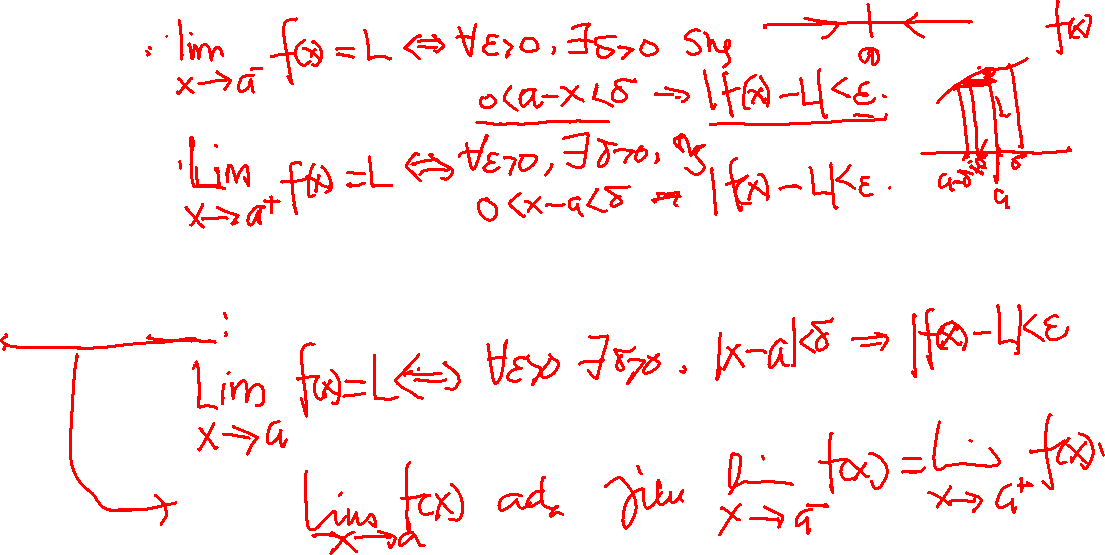 lim x→a⁻ f(x) = L ⇔ ∀ε>0, ∃δ>0 f(x)
0<a-x<δ → |f(x)-L|<ε.
Lim x→a⁺ f(x) = L ⇔ ∀ε>0, ∃δ>0,
0<x-a<δ → |f(x)-L|<ε.
a
Lim x→a f(x)=L ⇔ ∀ε>0 ∃δ>0. |x-a|<δ ⇒ |f(x)-L|<ε
Lim x→a f(x) Lim x→a⁻ f(x) = Lim x→a⁺ f(x).